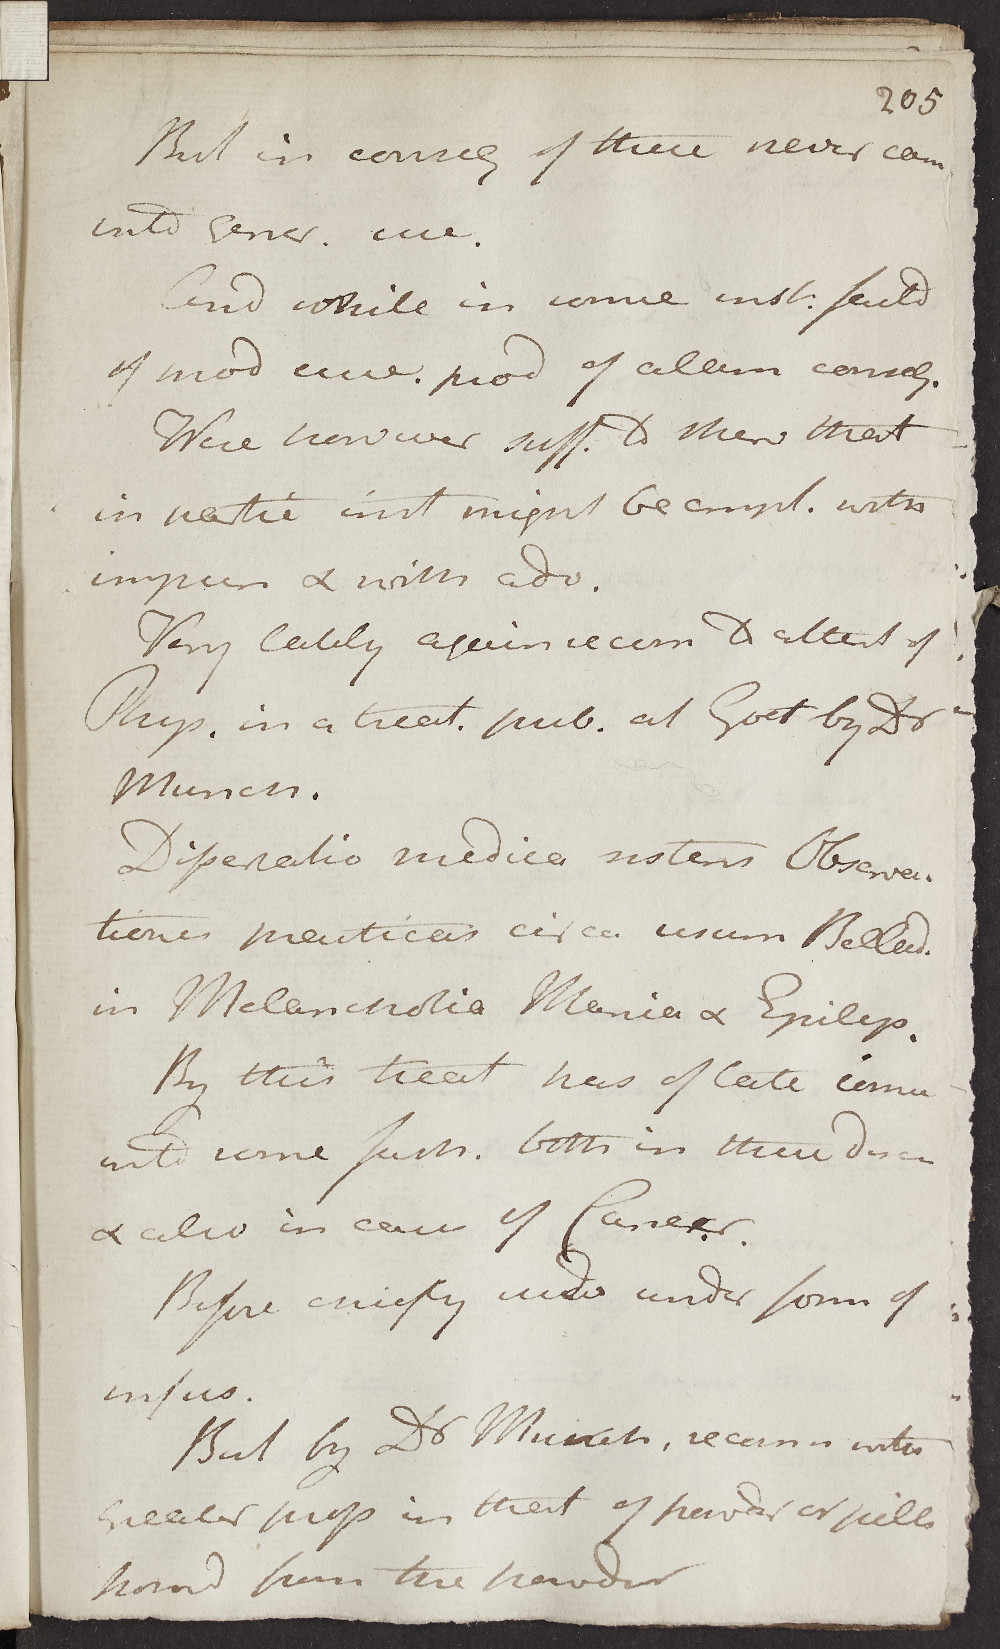 205
But in conseq of these never cam
into gener. use.
And while in some inst: faild
of mod use. prod of alarm conseq.
Were however suff. to shew that
in partic inst might be empl. with
impun & with adv.
Very lately again recom to attent of
Phys. in a treat. pub. at Goet by Dr
Munch.
Dissertatio medica sistens Observa.
tiones practicas circa usum Bellad.
in Melancholia Mania & Epilep.
By this treat has of late come
into some fash. both in these disea
& also in case of Cancer.
Before chiefly used under form of
infus.
But by Dr Munch, recomm with
greater prop in that of powder or pills
formd from the powder